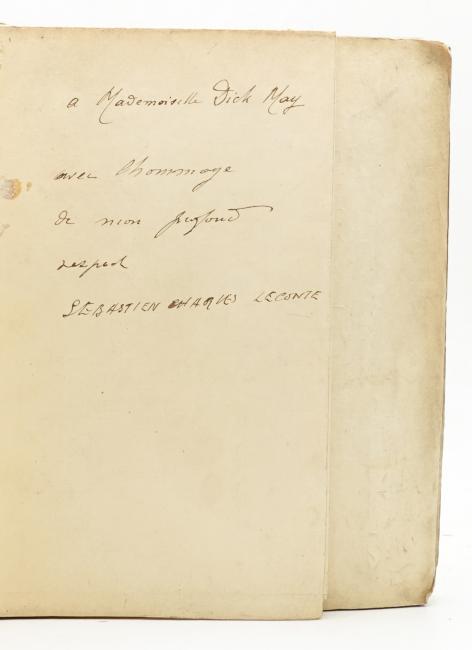 a Mademoiselle Dick May
avec l'hommage
de mon profond
respect
SÉBASTIEN CHARLES LECONTE